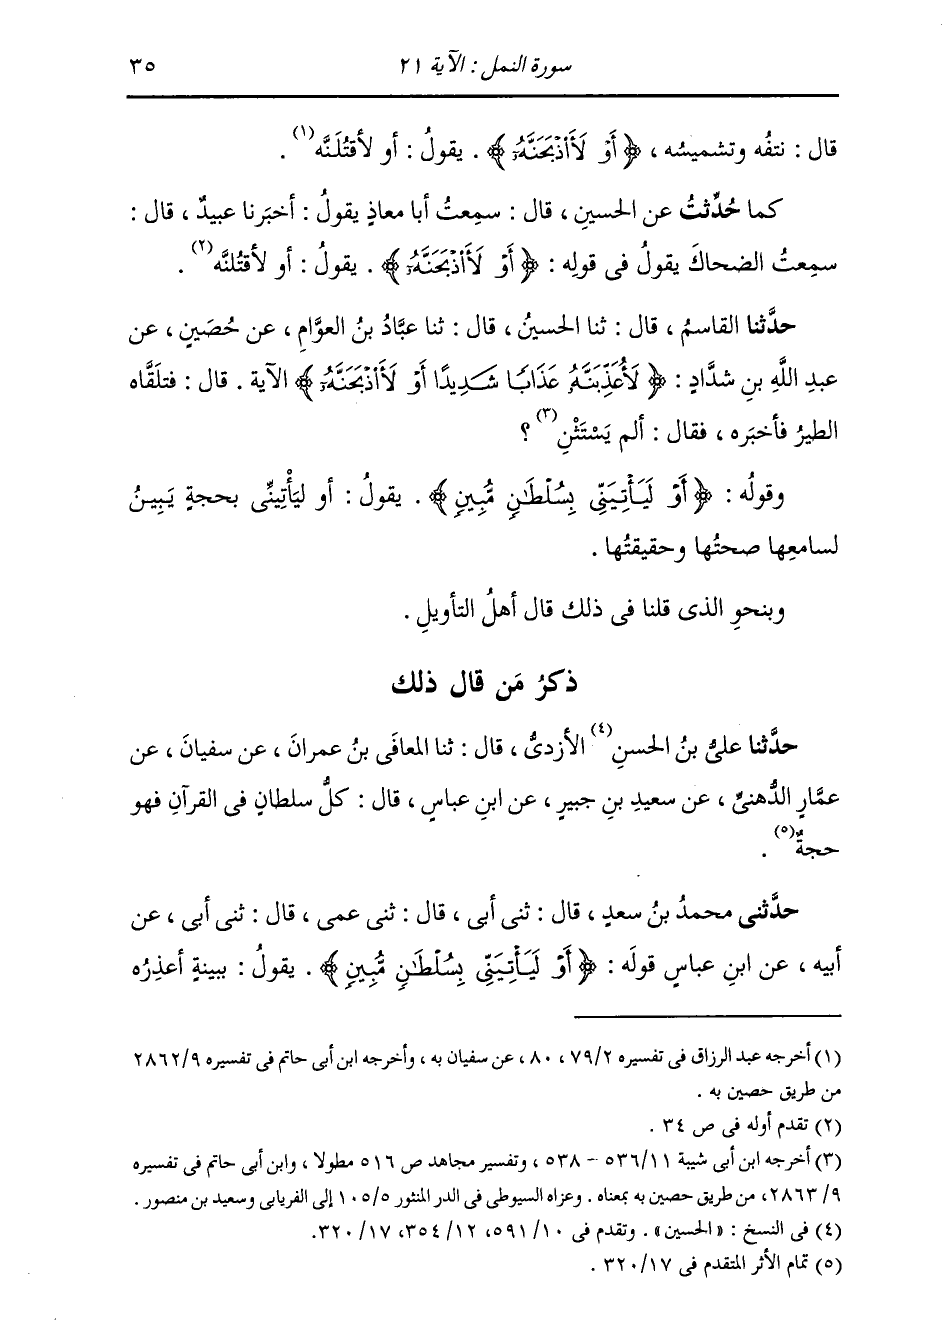 سورة النمل : الآية ٢١
٣٥
قال : نتفُه وتشميسُه ، ﴿ أَوْ لَأَاْذْبَحَنَّهُۥٓ ﴾ . يقولُ : أو لأقتُلَنَّه(١) .
كما حُدِّثتُ عن الحسينِ ، قال : سمِعتُ أبا معاذٍ يقولُ : أخبَرنا عبيدٌ ، قال :
سمِعتُ الضحاكَ يقولُ فى قولِه : ﴿ أَوْ لَأَاْذْبَحَنَّهُۥٓ ﴾ . يقولُ : أو لأقتُلنَّه(٢) .
حدَّثنا القاسمُ ، قال : ثنا الحسينُ ، قال : ثنا عبَّادُ بنُ العوَّامِ ، عن حُصَينٍ ، عن
عبدِ اللَّهِ بنِ شدَّادٍ : ﴿ لَأُعَذِّبَنَّهُۥ عَذَابًا شَدِيدًا أَوْ لَأَاْذْبَحَنَّهُۥٓ ﴾ الآية . قال : فتلَقَّاه
الطيرُ فأخبَره ، فقال : ألم يَسْتَثْنِ(٣) ؟
وقولُه : ﴿ أَوْ لَيَأْتِيَنِّى بِسُلْطَٰنٍ مُّبِينٍ ﴾ . يقولُ : أو ليَأْتِينِّى بحجةٍ يَبِينُ
لسامعِها صحتُها وحقيقتُها .
وبنحوِ الذى قلنا فى ذلك قال أهلُ التأويلِ .
ذكرُ مَن قال ذلك
حدَّثنا علىُّ بنُ الحسنِ(٤) الأزدىُّ ، قال : ثنا المعافَى بنُ عمرانَ ، عن سفيانَ ، عن
عمَّارٍ الدُّهنىِّ ، عن سعيدِ بنِ جبيرٍ ، عن ابنِ عباسٍ ، قال : كلُّ سلطانٍ فى القرآنِ فهو
حجةٌ(٥) .
حدَّثنى محمدُ بنُ سعدٍ ، قال : ثنى أبى ، قال : ثنى عمى ، قال : ثنى أبى ، عن
أبيه ، عن ابنِ عباسٍ قولَه : ﴿ أَوْ لَيَأْتِيَنِّى بِسُلْطَٰنٍ مُّبِينٍ ﴾ . يقولُ : ببينةٍ أعذِرُه
(١) أخرجه عبد الرزاق فى تفسيره ٧٩/٢ ، ٨٠ ، عن سفيان به ، وأخرجه ابن أبى حاتم فى تفسيره ٢٨٦٢/٩
من طريق حصين به .
(٢) تقدم أوله فى ص ٣٤ .
(٣) أخرجه ابن أبى شيبة ٥٣٦/١١ – ٥٣٨ ، وتفسير مجاهد ص ٥١٦ مطولا ، وابن أبى حاتم فى تفسيره
٢٨٦٣/٩، من طريق حصين به بمعناه . وعزاه السيوطى فى الدر المنثور ١٠٥/٥ إلى الفريابى وسعيد بن منصور .
(٤) فى النسخ : « الحسين » . وتقدم فى ٥٩١/١٠، ٣٥٤/١٢، ٣٢٠/١٧.
(٥) تمام الأثر المتقدم فى ٣٢٠/١٧ .